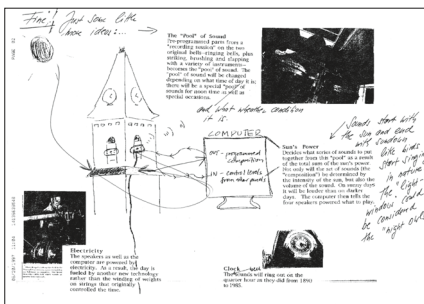 Fine! Just some little
more ideas:...
The "Pool" of Sound
Pre-programmed parts from a
"recording session" on the two
original bells-ringing bells, plus
striking, brushing and slapping
with a variety of instruments-
becomes the "pool" of sound. The
"pool" of sound will be changed
depending on what time of day it is;
there will be a special "pool" of
sounds for noon time as well as
special occasions.
and what weather condition
it is.
Sounds start with
the sun and end
with sundown
like birds
start singing
in nature
the "light-
window" could
be considered
the "night owl"
COMPUTER
OUT - programmed
compositions
IN - control levels
from solar panels
Sun's Power
Decides what series of sounds to put
together from this "pool" as a result
of the total sum of the sun's power.
Not only will the set of sounds (the
"composition") be determined by
the intensity of the sun, but also the
volume of the sound. On sunny days
it will be louder than on darker
days. The computer then tells the
four speakers what to play.
Electricity
The speakers as well as the
computer are powered by
electricity. As a result, the day is
fueled by another new technology
rather than the winding of weights
on strings that originally
controlled the time.
Clock
The sounds will ring out on the
quarter hour as they did from 1890
to 1985.